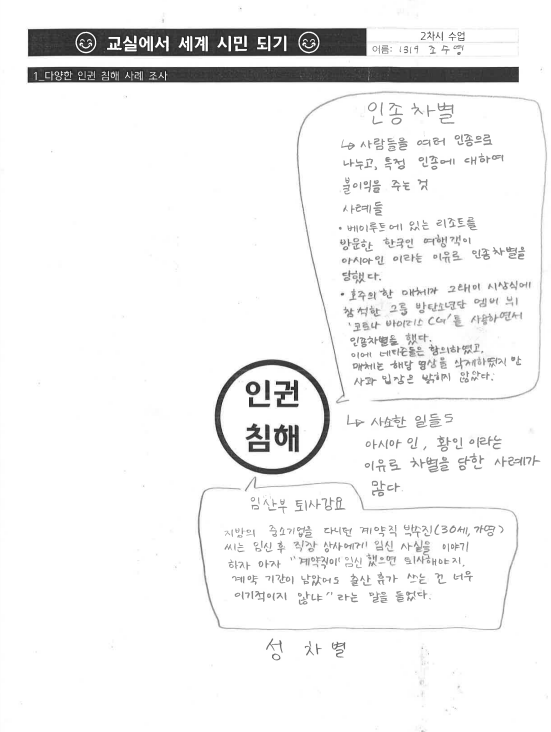 교실에서 세계 시민 되기
2차시 수업
이름: 1319 조수영
1_다양한 인권 침해 사례 조사
인종차별
↳ 사람들을 여러 인종으로
나누고, 특정 인종에 대하여
불이익을 주는 것
사례들
• 베이루트에 있는 리조트를
방문한 한국인 여행객이
아시아인 이라는 이유로 인종차별을
당했다.
• 호주의 한 매체가 그래미 시상식에
참석한 그룹 방탄소년단 멤버 뷔
'코로나 바이러스 CG'를 사용하면서
인종차별을 했다.
이에 네티즌들은 항의하였고,
매체는 해당 영상을 삭제하였지만
사과 입장은 밝히지 않았다.
인권
침해
↳ 사소한 일들도
아시아인, 황인이라는
이유로 차별을 당한 사례가
많다.
임산부 퇴사강요
지방의 중소기업을 다니던 계약직 박수진(30세, 가명)
씨는 임신 후 직장 상사에게 임신 사실을 이야기
하자 마자 "계약직이 임신했으면 퇴사해야지,
계약 기간이 남았어도 출산 휴가 쓰는 건 너무
이기적이지 않냐"라는 말을 들었다.
성 차별